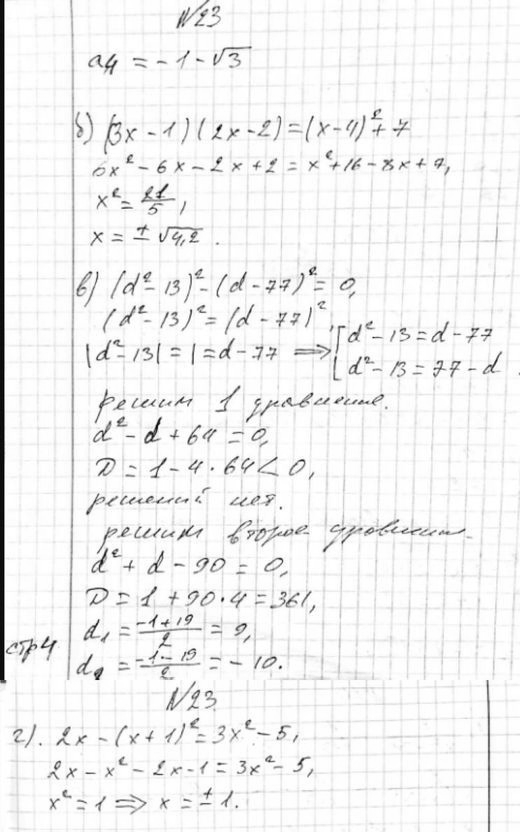 №23
a₄ = -1 - √3
б) (3x - 1)(2x - 2) = (x - 4)² + 7
6x² - 6x - 2x + 2 = x² + 16 - 8x + 7,
x² = 21/5,
x = ± √4,2.
в) (d² - 13)² - (d - 77)² = 0,
(d² - 13)² = (d - 77)²,
|d² - 13| = |= d - 77 ⟹ [ d² - 13 = d - 77
d² - 13 = 77 - d.
решим 1 уравнение.
d² - d + 64 = 0,
D = 1 - 4 · 64 < 0,
решений нет.
решим второе уравнение.
d² + d - 90 = 0,
D = 1 + 90 · 4 = 361,
d₁ = (-1 + 19)/2 = 9,
стр 4
d₂ = (-1 - 19)/2 = -10.
№23
г). 2x - (x + 1)² = 3x² - 5,
2x - x² - 2x - 1 = 3x² - 5,
x² = 1 ⟹ x = ± 1.